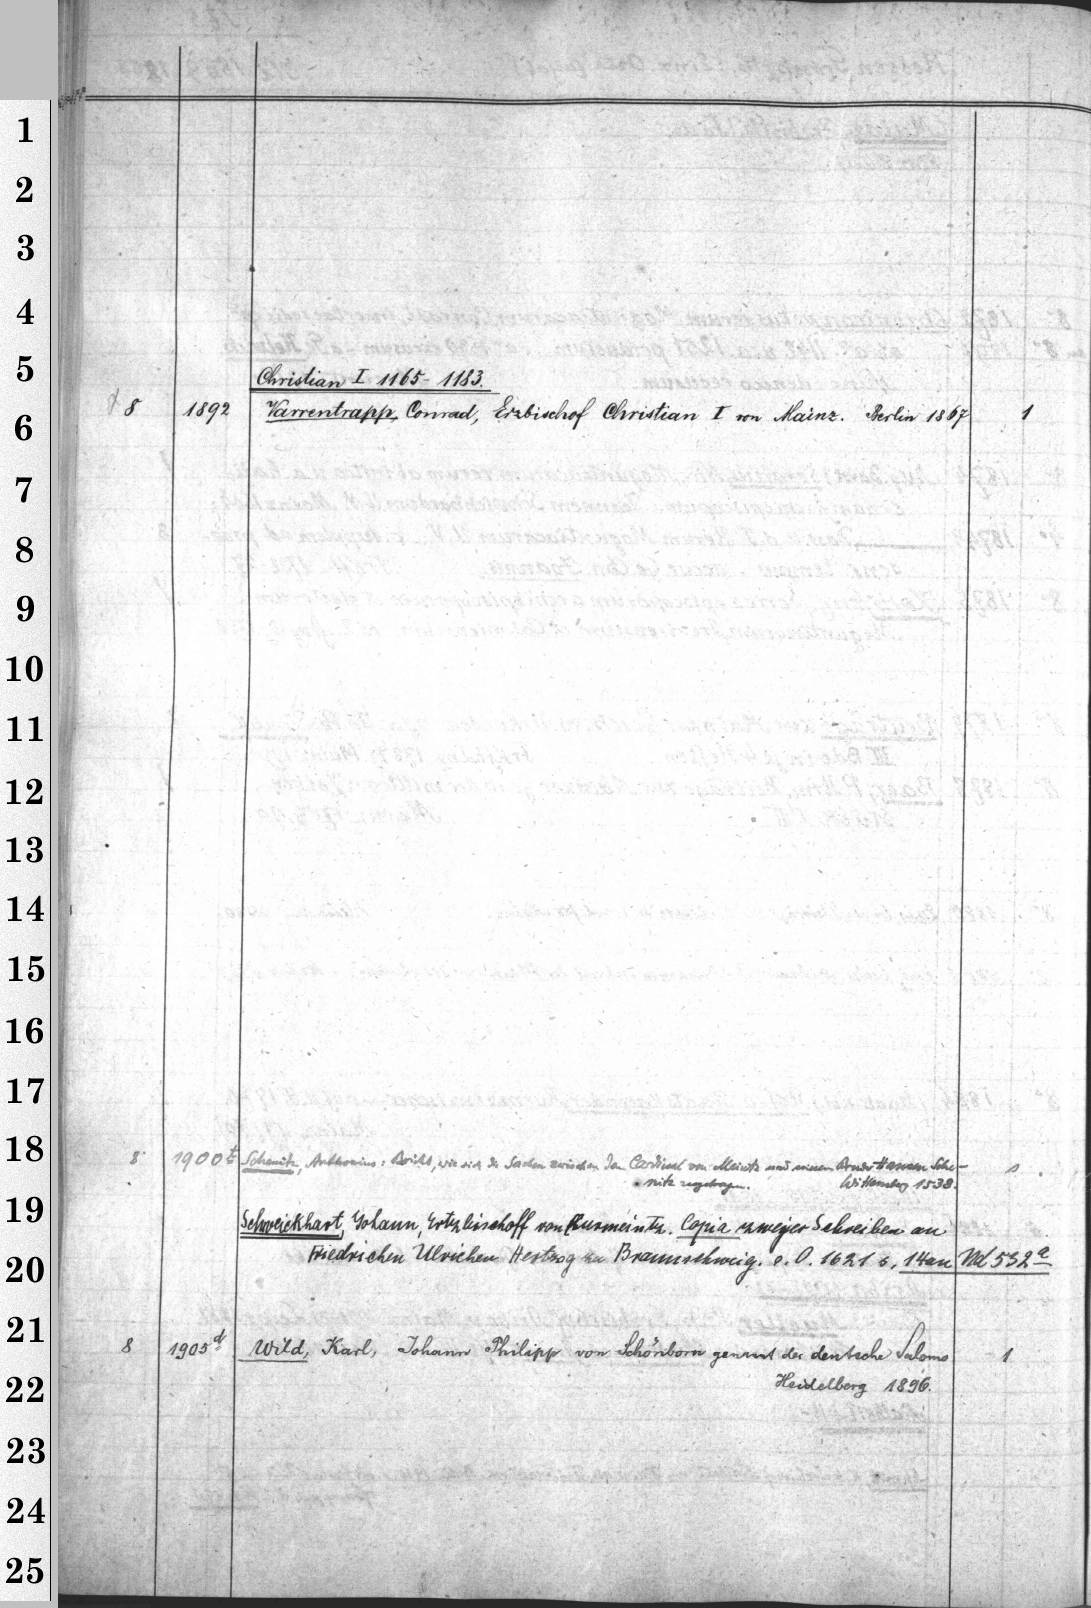 1
2
3
4
5
Christian I 1165-1183.
6
8 1892 Varrentrapp, Conrad, Erzbischof Christian I von Mainz. Berlin 1867 1
7
8
9
10
11
12
13
14
15
16
17
18
8 1900t Schenitz, Anthonius: Bericht, wie sich die Sachen zwischen dem Cardinal von Meintz und seinem Bruder Hansen Sche-
nitz zugetragen. Wittenberg 1538.
19
Schweickhart, Johann, Ertzbischoff von Curmeintz. Copia zweyer Schreiben an
20
Friedrichen Ulrichen Hertzog zu Braunschweig. o. O. 1621 s. 14 an Nd 532a
21
8 1905d Wild, Karl, Johann Philipp von Schönborn genannt der deutsche Salomo 1
22
Heidelberg 1896.
23
24
25